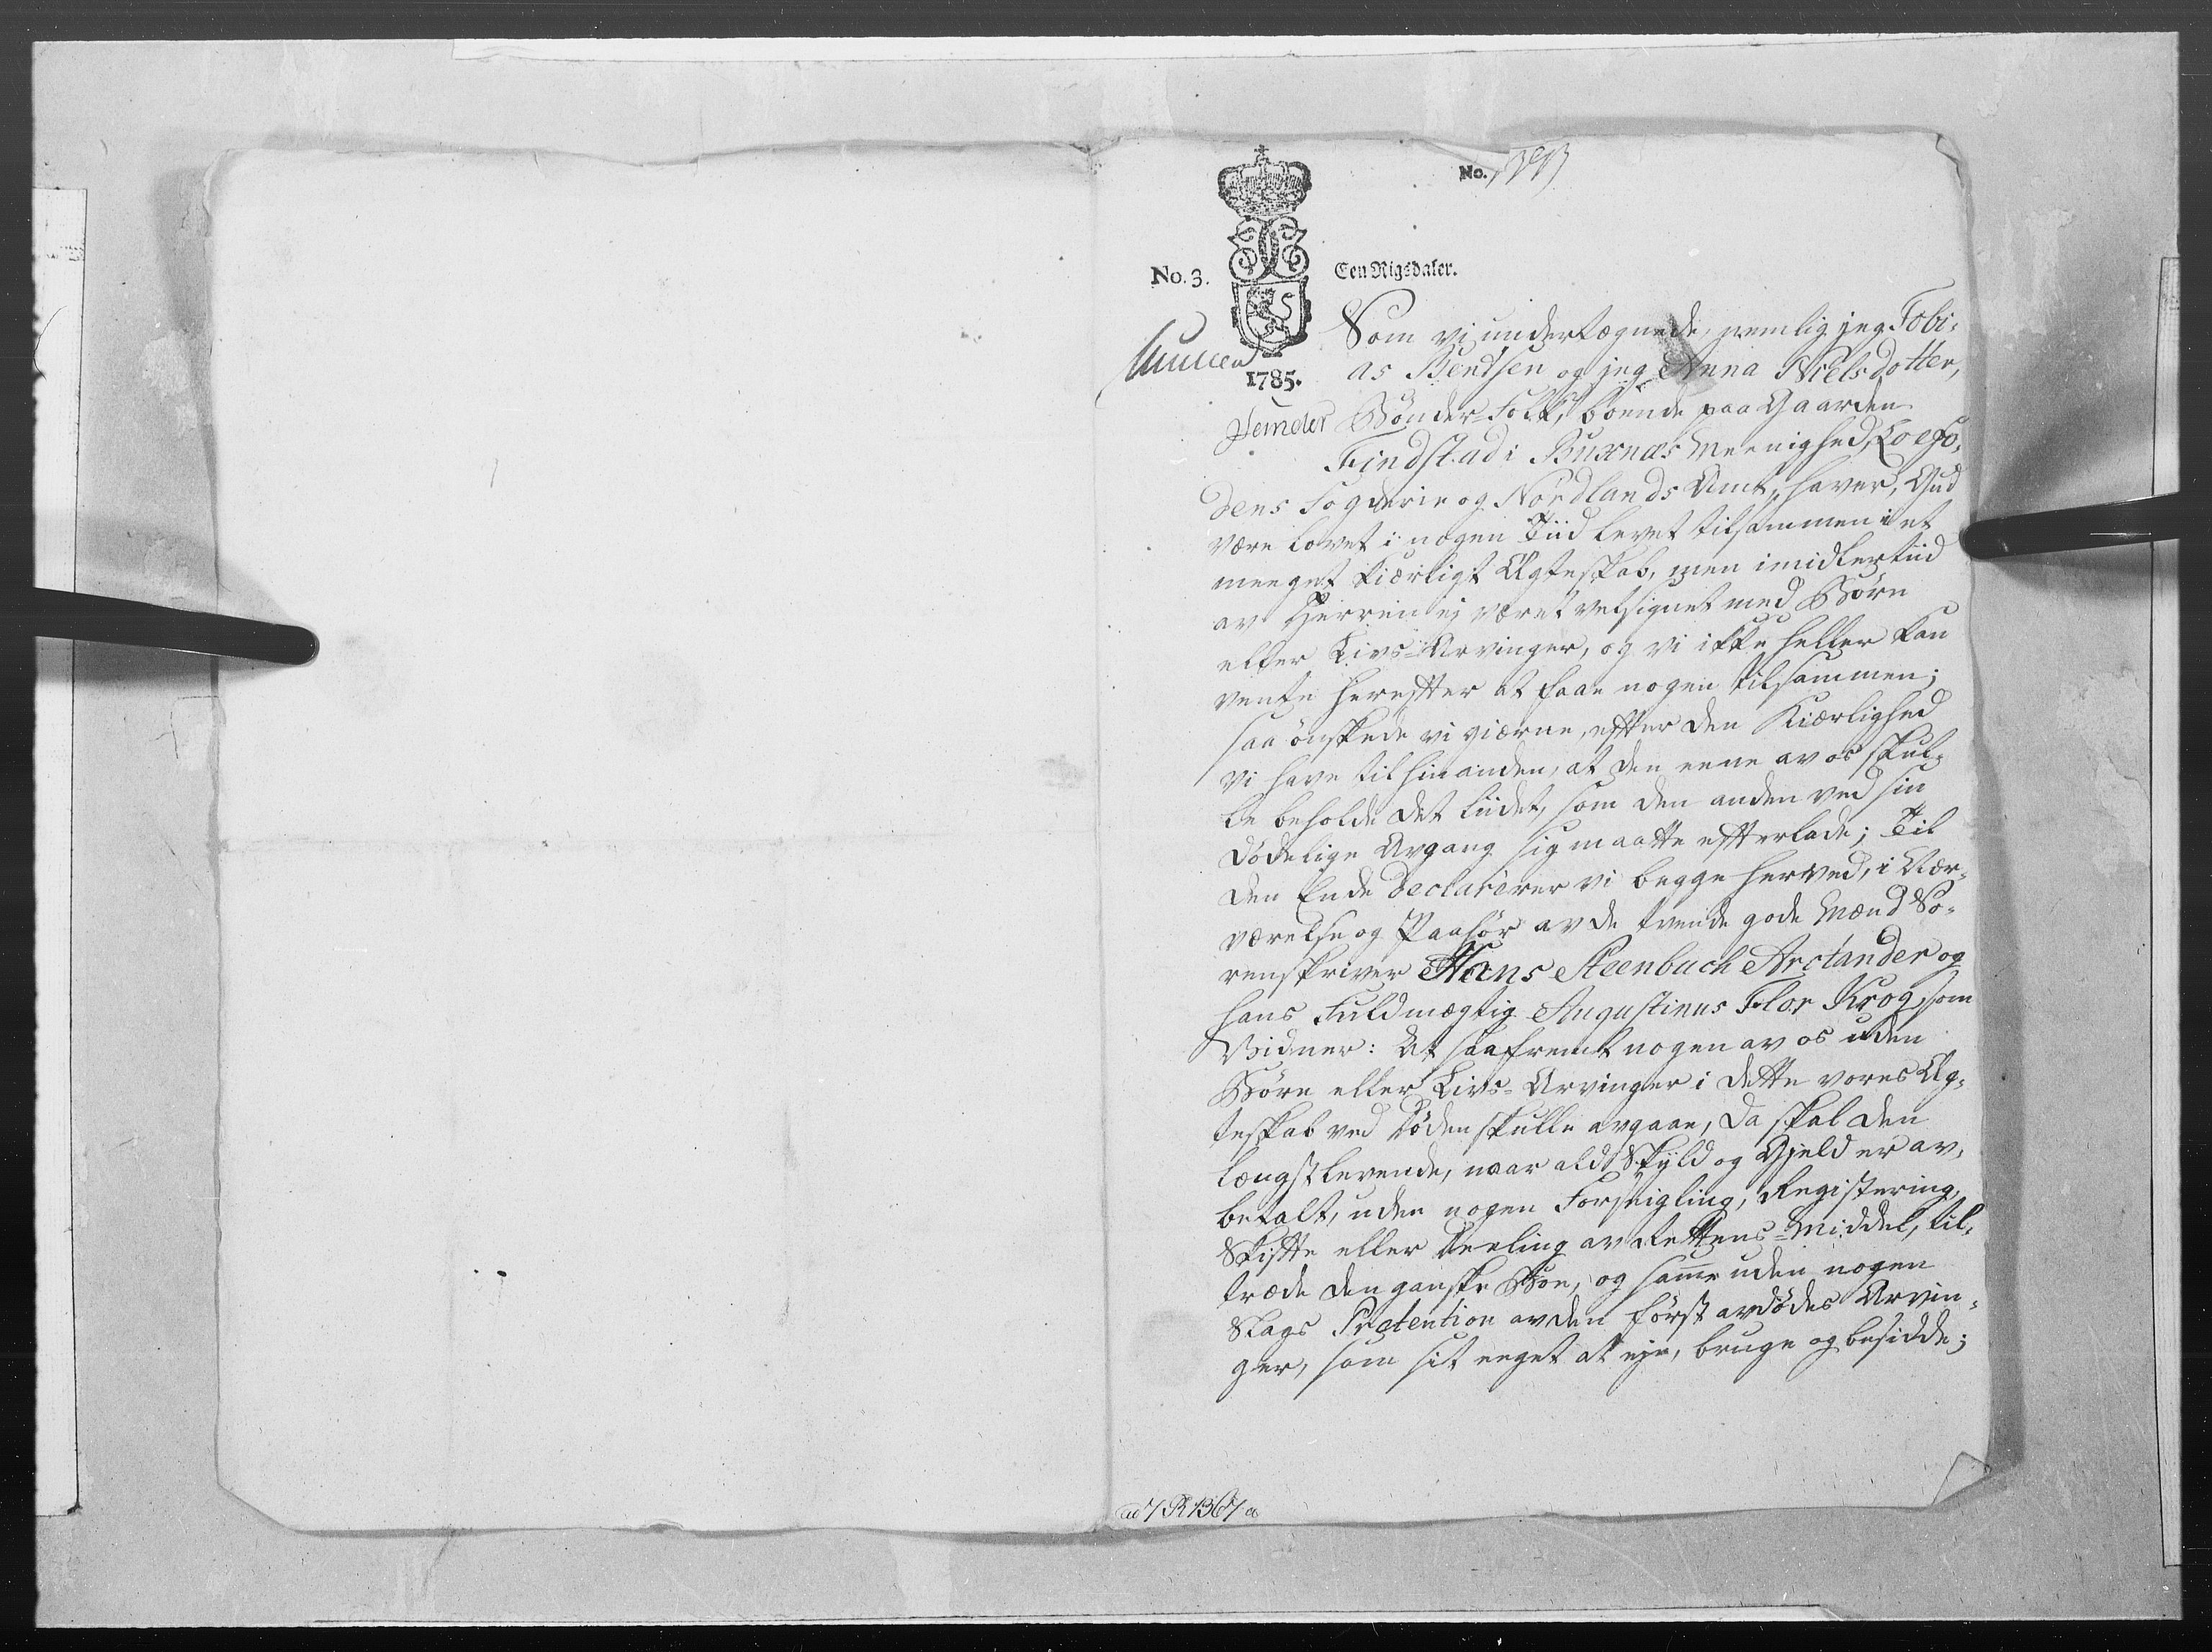 No. 1393
No. 3.
Een Rigsdaler.
1785.
Som vi undertegnede, nemlig jeg Tobi-
as Bendsen og jeg Anna Nielsdotter,
Bönder-Folk, boende paa Gaarden
Findstad i Buxnæs Meenighed, Loefo-
dens Fogderie og Nordlands Amt, haver, Gud
være lovet i nogen Tiid levet tilsammen i et
meeget kierligt Ægteskab, men imidlertiid
av Herren ej været velsignet med Börn
eller Livs-Arvinger, og vi ikke heller kan
vente herefter at faae nogen tilsammen;
saa önskede vi gierne, efter den Kierlighed
vi have til hinanden, at den eene av os skul-
le beholde det liidet, som den anden ved sin
dödelige Avgang sig maatte efterlade; Til
den Ende declarerer vi begge herved, i Nær-
værelse og Paahör av de tvende gode Mænd So-
renskriver Hans Steenbuch Arctander og
hans Fuldmægtig Augustinus Flor Krog, som
Vidner: At saafremt nogen av os uden
Börn eller Livs-Arvinger i dette vores Æg-
teskab ved Döden skulle avgaae, da skal den
længstlevende, naar ald Skyld og Gjeld er av-
betalt, uden nogen Forseigling, Registering,
Skifte eller Deeling av Rettens-Middel, til-
træde den ganske Boe, og samme uden nogen
Slags Prætention av den först avdödes Arvin-
ger, som sit eeget at eje, bruge og besidde;
ad 7 R 1367 a